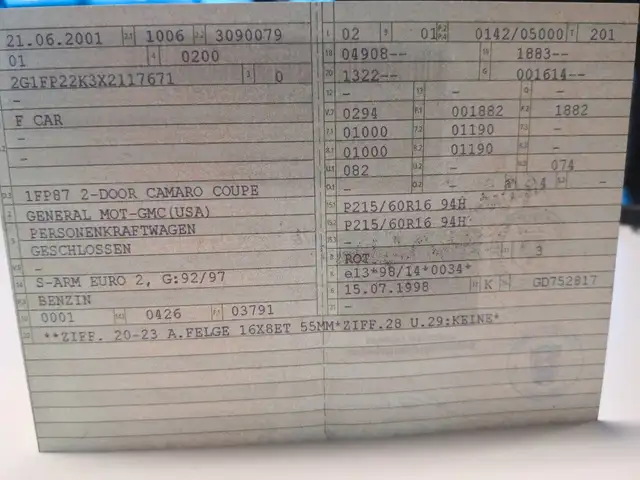 21.06.2001 2.1 1006 2.2 3090079
01 4 0200
2G1FP22K3X2117671 3 0
-
F CAR
-
-
D.3 1FP87 2-DOOR CAMARO COUPE
2 GENERAL MOT-GMC(USA)
5 PERSONENKRAFTWAGEN
GESCHLOSSEN
-
S-ARM EURO 2, G:92/97
BENZIN
0001 0426 03791
**ZIFF. 20-23 A.FELGE 16X8ET 55MM*ZIFF.28 U.29:KEINE*
L 02 9 01 P.2 P.4 0142/05000 T 201
18 04908-- 19 1883--
20 1322-- G 001614--
12 - 13 - Q -
V.7 0294 F.1 001882 F.2 1882
7.1 01000 7.2 01190 -
8.1 01000 8.2 01190 -
U.1 082 - 074
O.1 - - 4 S.2 -
15.1 P215/60R16 94H
15.2 P215/60R16 94H
-
R ROT 11 3
K e13*98/14*0034*
6 15.07.1998 17 K 16 GD752817